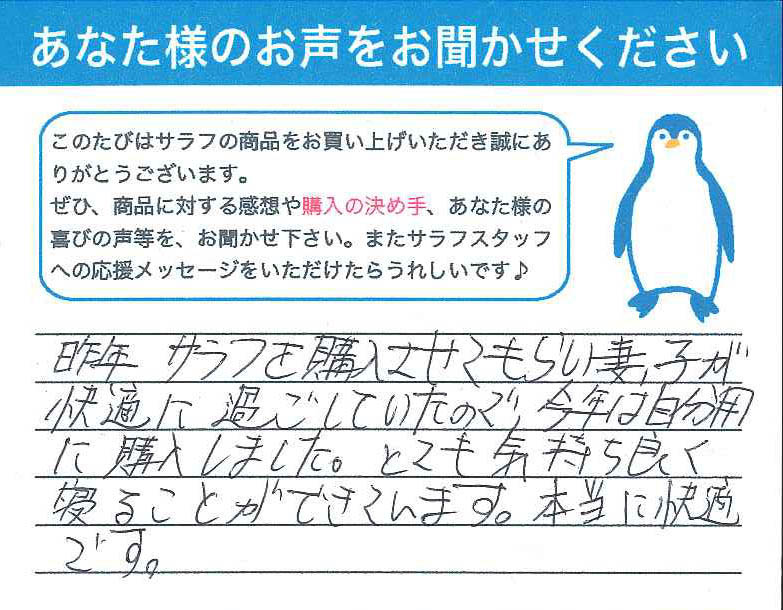 あなた様のお声をお聞かせください
このたびはサラフの商品をお買い上げいただき誠にあ
りがとうございます。
ぜひ、商品に対する感想や購入の決め手、あなた様の
喜びの声等を、お聞かせ下さい。またサラフスタッフ
への応援メッセージをいただけたらうれしいです♪
昨年 サラフを購入させてもらい妻、子が
快適に過ごしていたので、今年は自分用
に購入しました。とても気持ち良く
寝ることができています。本当に快適
です。